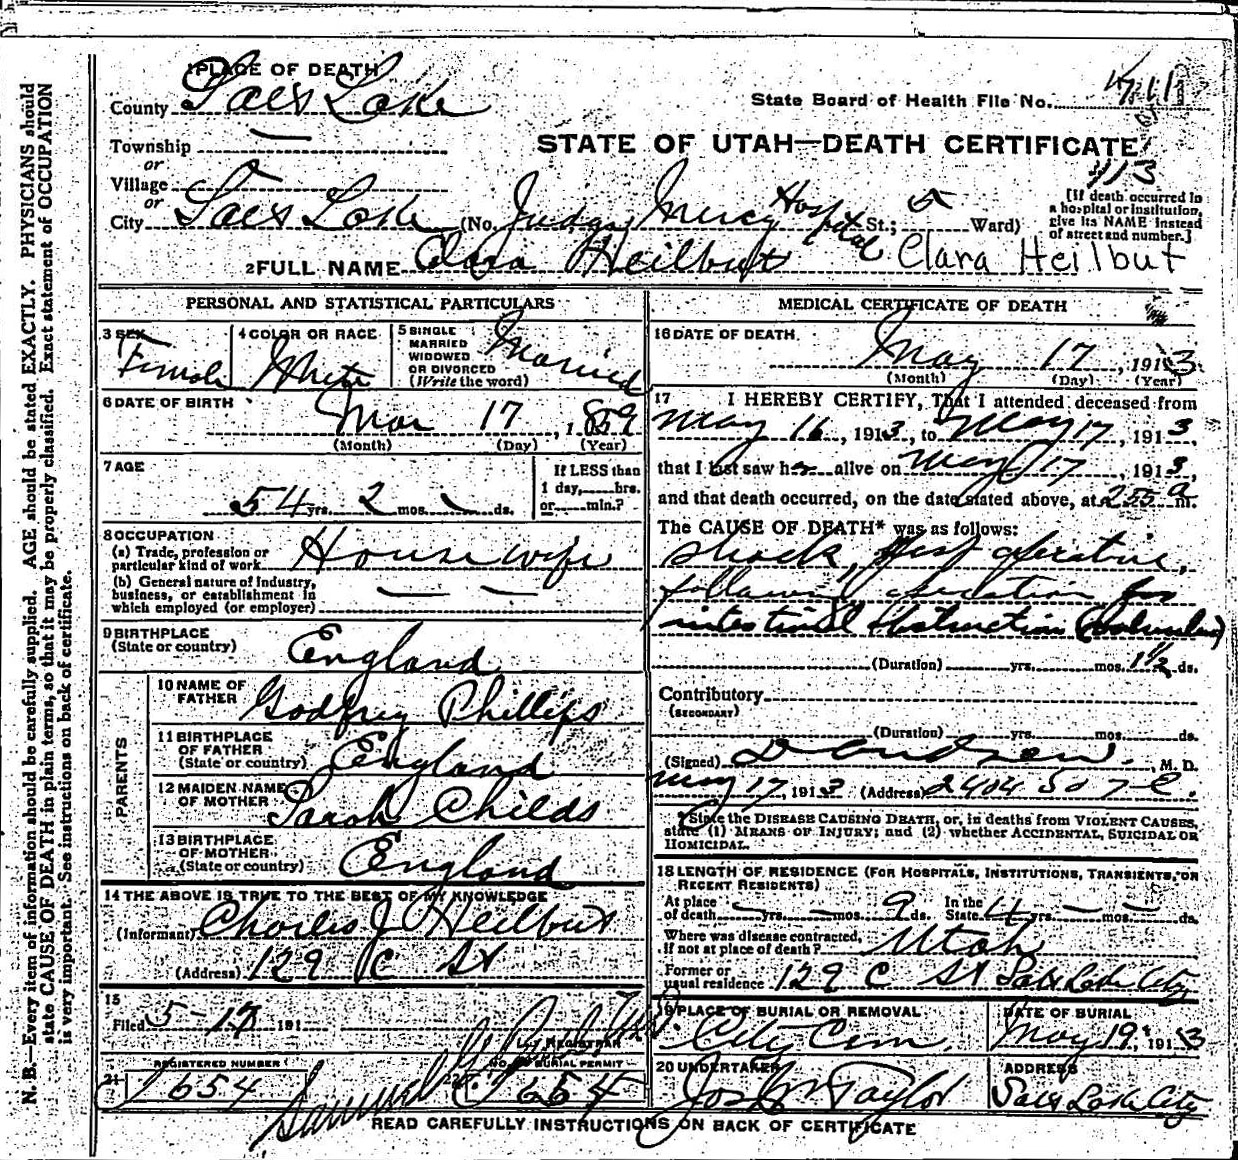 PLACE OF DEATH
County Salt Lake
State Board of Health File No.
Township —
or
STATE OF UTAH—DEATH CERTIFICATE
113
Village —
or
City Salt Lake (No. Judge Mercy Hospital St.; 5 Ward)
[If death occurred in
a hospital or institution,
give its NAME instead
of street and number.]
2 FULL NAME Clara Heilbut Clara Heilbut
PERSONAL AND STATISTICAL PARTICULARS
3 SEX
Female
4 COLOR OR RACE
White
5 SINGLE
MARRIED
WIDOWED
OR DIVORCED
(Write the word)
Married
6 DATE OF BIRTH
Mar 17, 1859
(Month) (Day) (Year)
7 AGE
54 yrs. 2 mos. — ds.
If LESS than
1 day, hrs.
or min.?
8 OCCUPATION
(a) Trade, profession or
particular kind of work House wife
(b) General nature of industry,
business, or establishment in
which employed (or employer) — —
9 BIRTHPLACE
(State or country) England
PARENTS
10 NAME OF
FATHER Godfrey Phillips
11 BIRTHPLACE
OF FATHER
(State or country) England
12 MAIDEN NAME
OF MOTHER Sarah Childs
13 BIRTHPLACE
OF MOTHER
(State or country) England
14 THE ABOVE IS TRUE TO THE BEST OF MY KNOWLEDGE
(Informant) Charles J Heilbut
(Address) 129 C St
15
Filed 5-17 191
REGISTRAR
REGISTERED NUMBER
21 654
NO. OF BURIAL PERMIT
22 654
MEDICAL CERTIFICATE OF DEATH
16 DATE OF DEATH
May 17, 1913
(Month) (Day) (Year)
17 I HEREBY CERTIFY, That I attended deceased from
May 16, 1913, to May 17, 1913,
that I last saw her alive on May 17, 1913,
and that death occurred, on the date stated above, at 255 a m.
The CAUSE OF DEATH* was as follows:
shock, post operative,
following operation for
intestinal obstruction
(Duration) yrs. mos. 1½ ds.
Contributory
(SECONDARY)
(Duration) yrs. mos. ds.
(Signed), M. D.
May 17, 1913 (Address) 2404 So 7 E.
*State the DISEASE CAUSING DEATH, or, in deaths from VIOLENT CAUSES,
state (1) MEANS OF INJURY; and (2) whether ACCIDENTAL, SUICIDAL OR
HOMICIDAL.
18 LENGTH OF RESIDENCE (FOR HOSPITALS, INSTITUTIONS, TRANSIENTS, OR
RECENT RESIDENTS)
At place
of death — yrs. — mos. 9 ds.
In the
State 4 yrs. — mos. — ds.
Where was disease contracted,
if not at place of death? Utah
Former or
usual residence 129 C St Salt Lake City
19 PLACE OF BURIAL OR REMOVAL
City Cem.
DATE OF BURIAL
May 19, 1913
20 UNDERTAKER
Jos Wm Taylor
ADDRESS
Salt Lake City
READ CAREFULLY INSTRUCTIONS ON BACK OF CERTIFICATE
N. B.—Every item of information should be carefully supplied. AGE should be stated EXACTLY. PHYSICIANS should
state CAUSE OF DEATH in plain terms, so that it may be properly classified. Exact statement of OCCUPATION
is very important. See instructions on back of certificate.